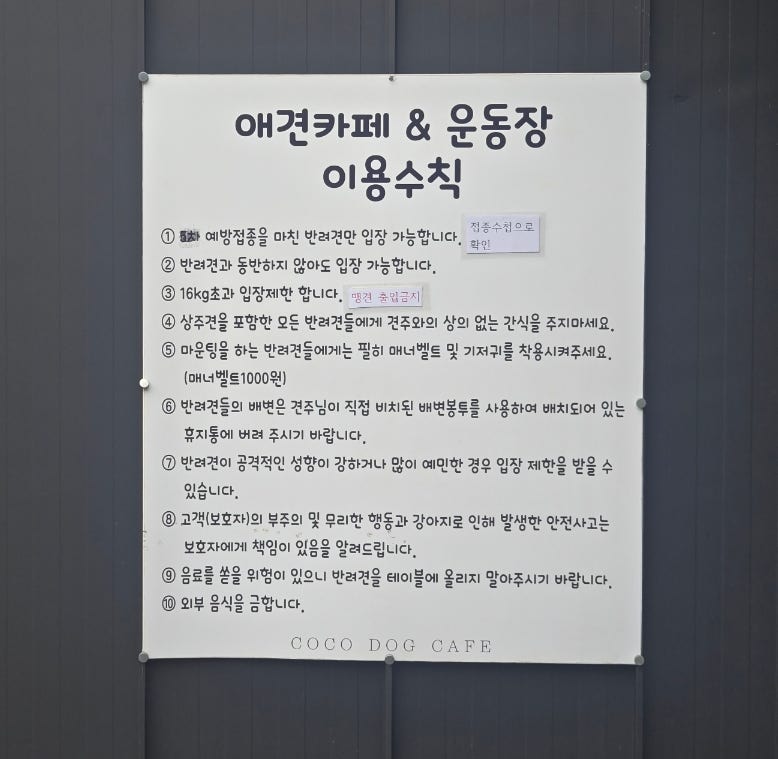 애견카페 & 운동장
이용수칙
① 예방접종을 마친 반려견만 입장 가능합니다.
접종수첩으로
확인
② 반려견과 동반하지 않아도 입장 가능합니다.
③ 16kg초과 입장제한 합니다. 맹견 출입금지
④ 상주견을 포함한 모든 반려견들에게 견주와의 상의 없는 간식을 주지마세요.
⑤ 마운팅을 하는 반려견들에게는 필히 매너벨트 및 기저귀를 착용시켜주세요.
(매너벨트1000원)
⑥ 반려견들의 배변은 견주님이 직접 비치된 배변봉투를 사용하여 배치되어 있는
휴지통에 버려 주시기 바랍니다.
⑦ 반려견이 공격적인 성향이 강하거나 많이 예민한 경우 입장 제한을 받을 수
있습니다.
⑧ 고객(보호자)의 부주의 및 무리한 행동과 강아지로 인해 발생한 안전사고는
보호자에게 책임이 있음을 알려드립니다.
⑨ 음료를 쏟을 위험이 있으니 반려견을 테이블에 올리지 말아주시기 바랍니다.
⑩ 외부 음식을 금합니다.
COCO DOG CAFE